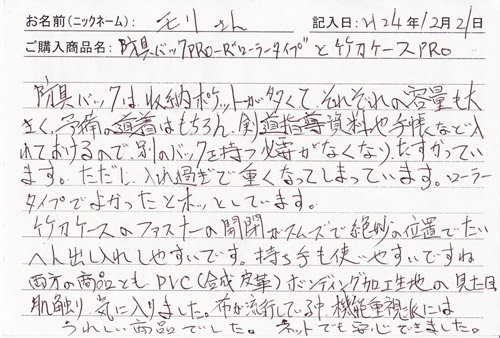 お名前(ニックネーム): モリさん 記入日:H24年12月21日
ご購入商品名: 防具バックPRO-R"ローラータイプ"と竹刀ケースPRO
防具バックは、収納ポケットが多くて、それぞれの容量も大
きく、予備の道着はもちろん、剣道指導資料や手帳など入
れておけるので、別のバックを持つ必要がなくなり、たすかってい
ます。ただし、入れ過ぎて重くなってしまっています。ローラー
タイプでよかったとホッとしています。
竹刀ケースのファスナーの開閉がスムーズで絶妙の位置でたい
へん出し入れしやすいです。持ち手も使いやすいですね
両方の商品とも、PVC(合成皮革)ボンディング加工生地の見た目
肌触り、気に入りました。布が流行している中、機能重視派には
うれしい商品でした。ネットでも安心できました。